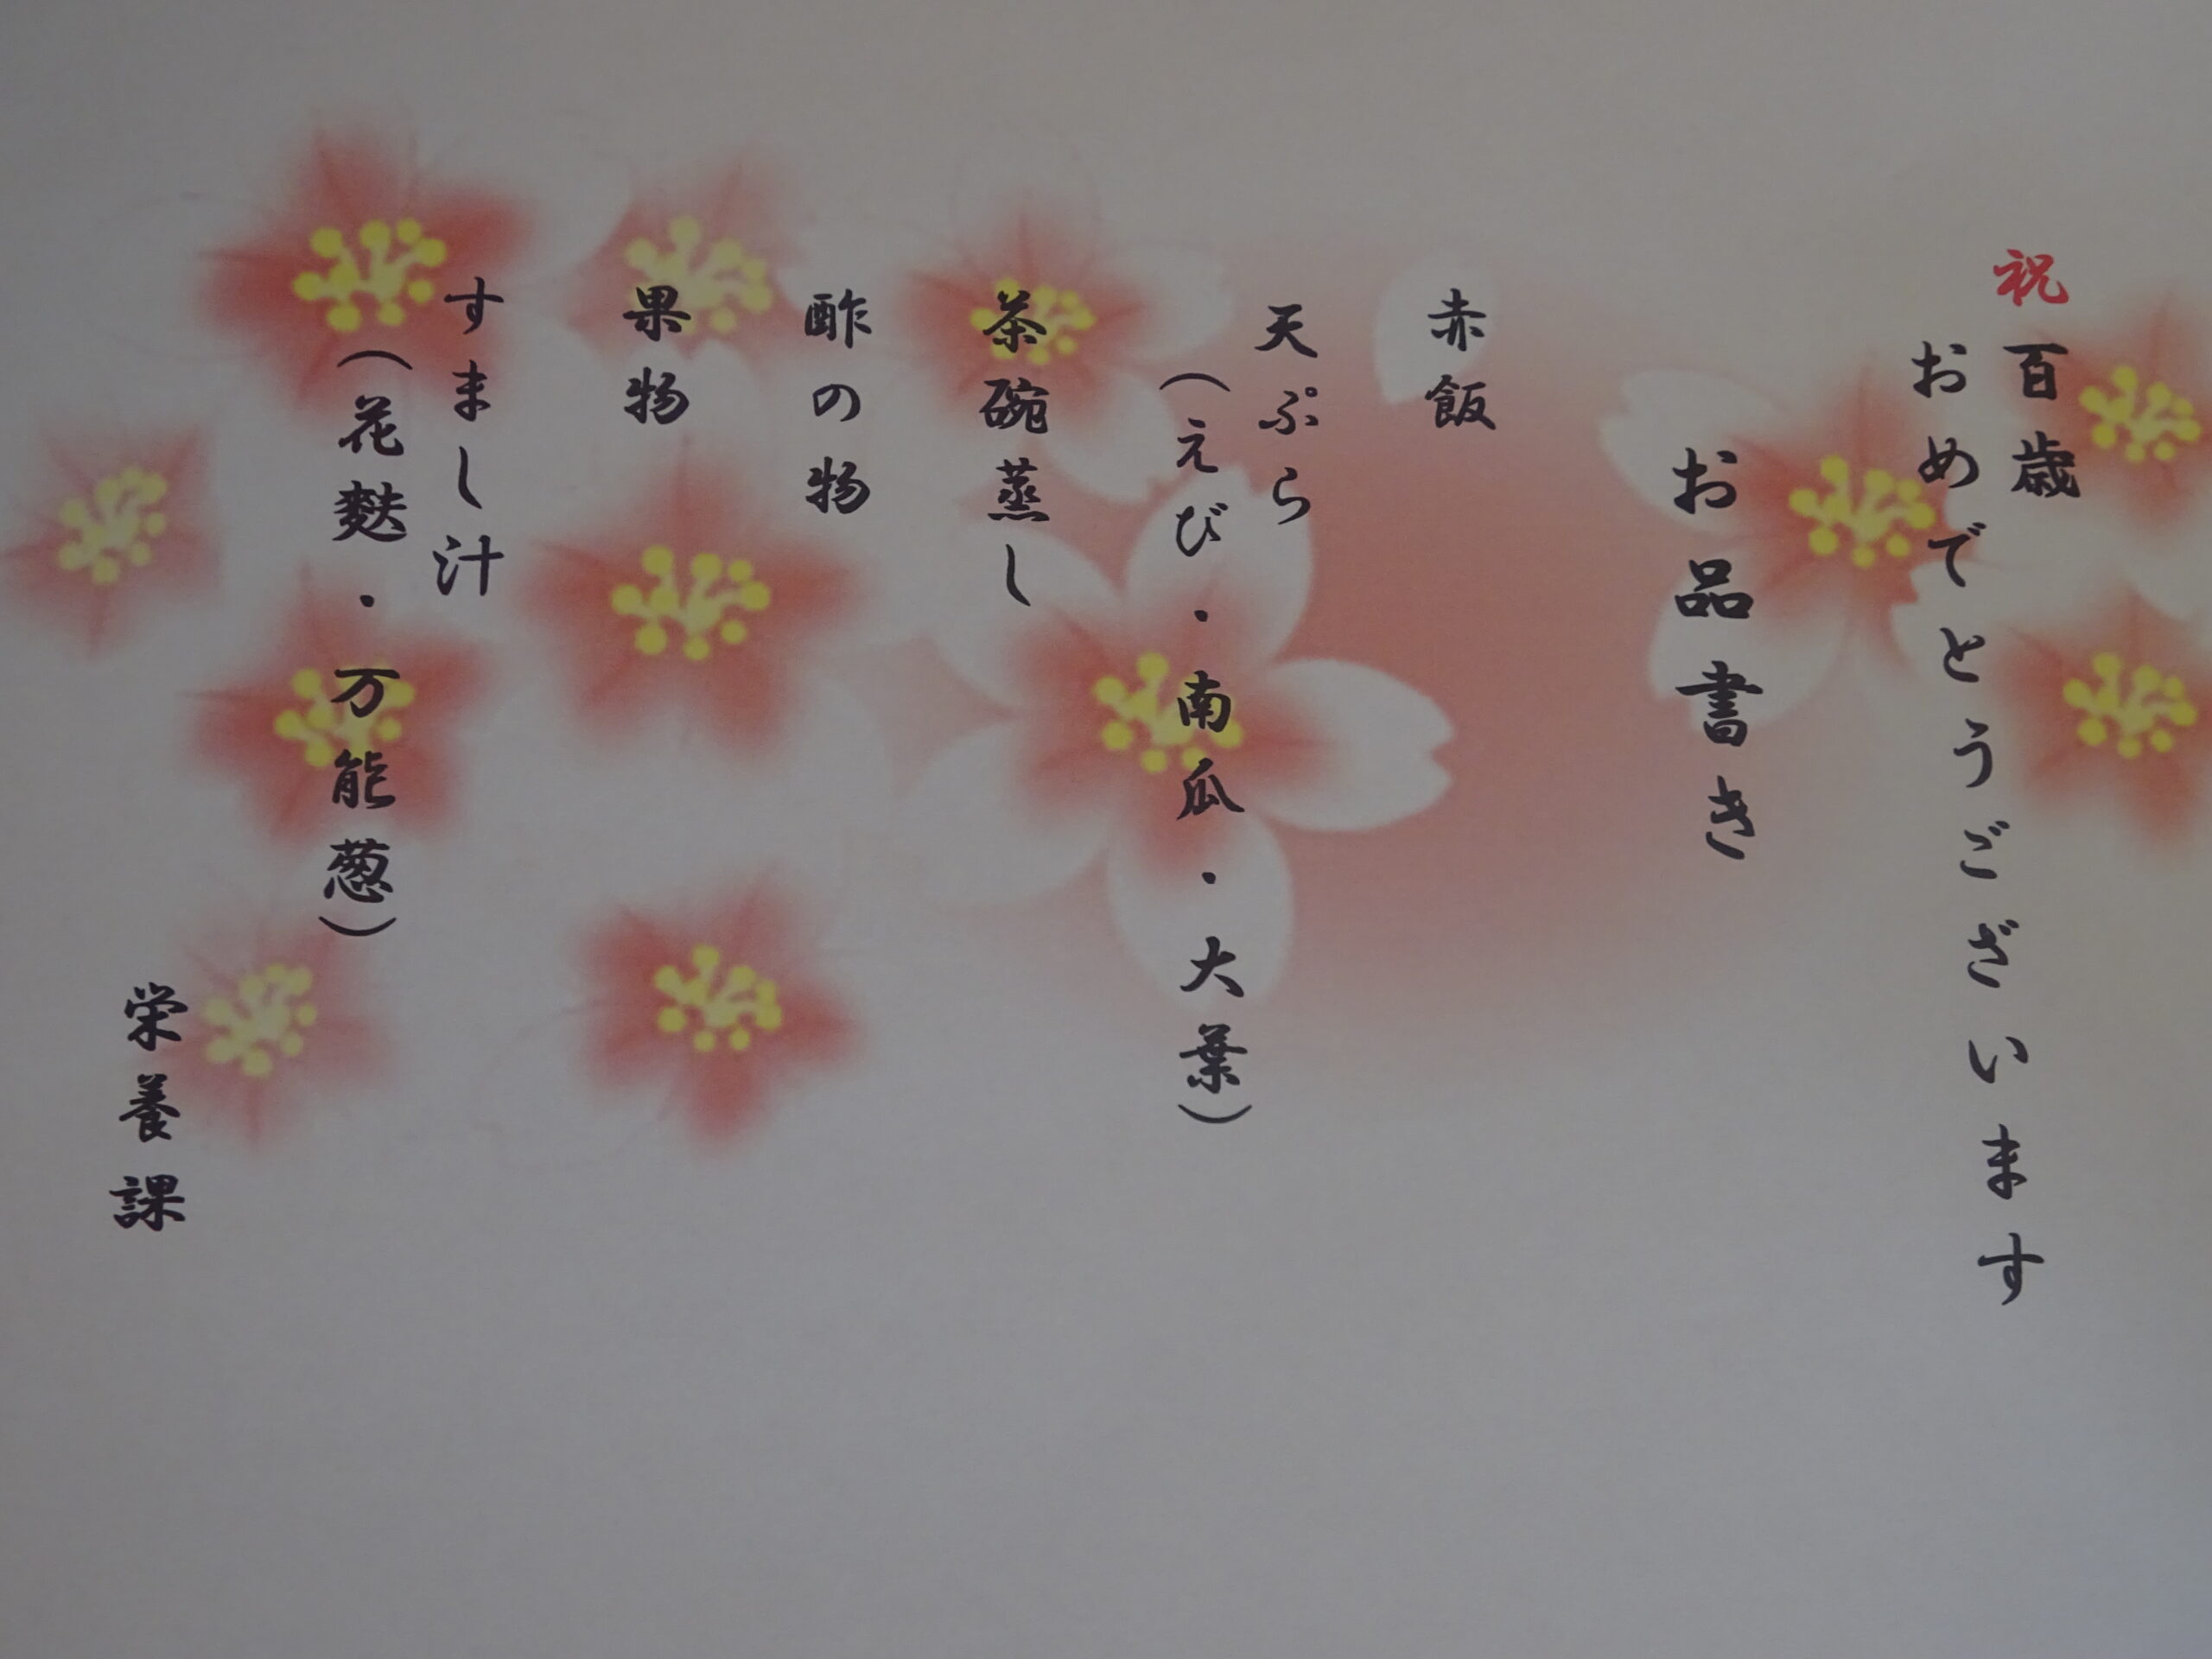 祝 百歳
おめでとうございます
お品書き
赤飯
天ぷら
(えび・南瓜・大葉)
茶碗蒸し
酢の物
果物
すまし汁
(花麩・万能葱)
栄養課